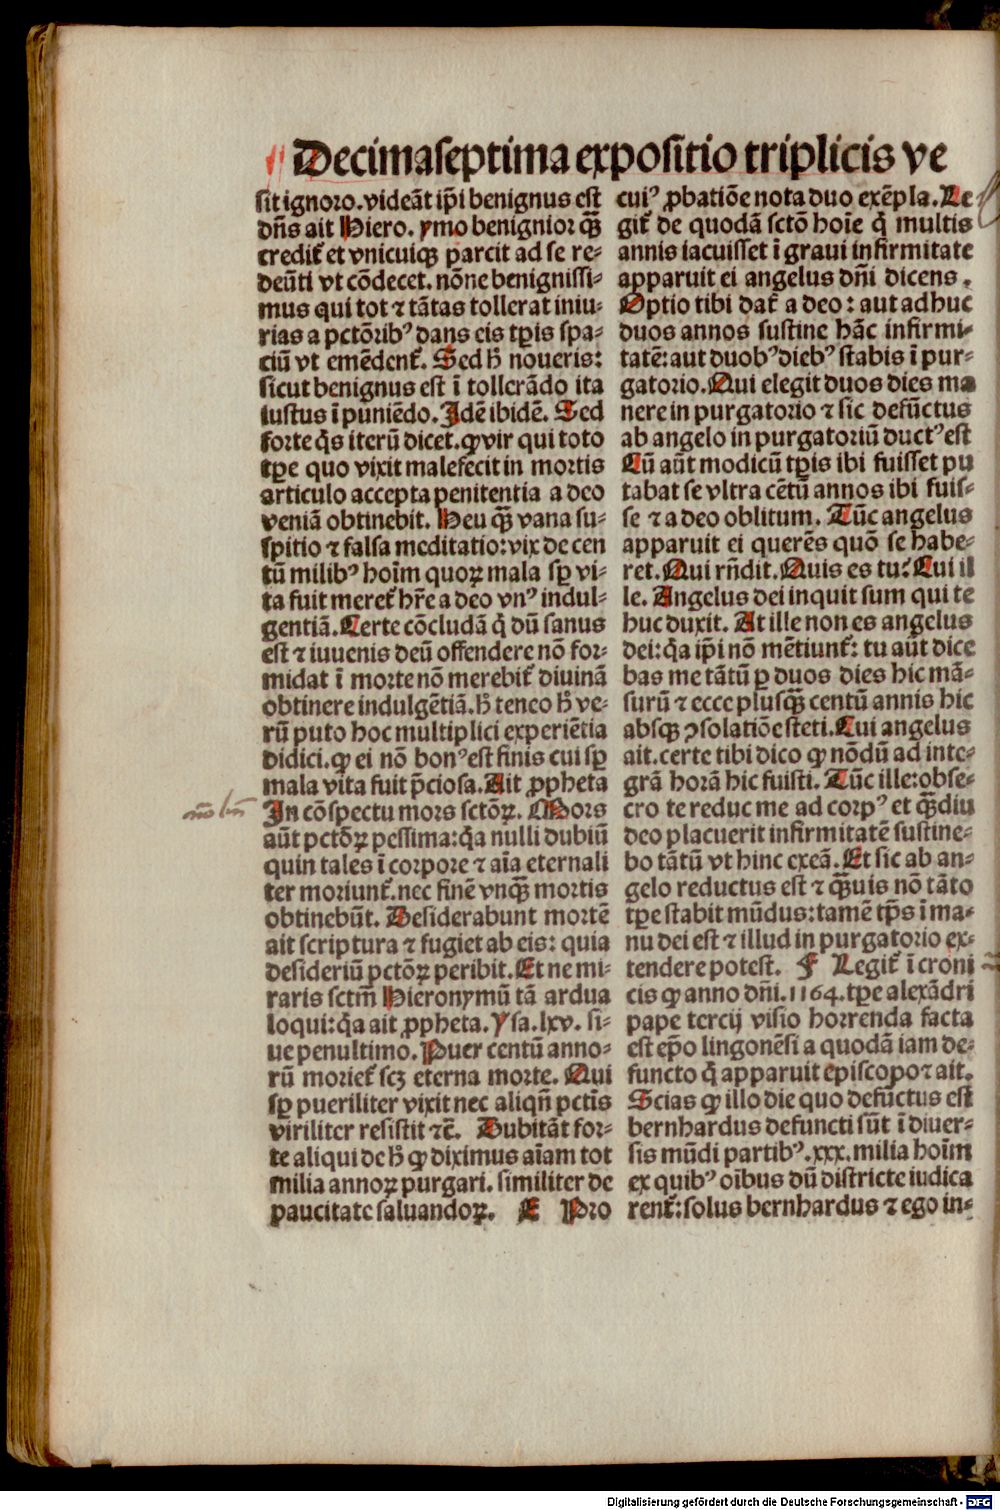 Decimaseptima expositio triplicis ve
sit ignoro. videāt ip̄i benignus est
dn̄s ait Hiero. ymo benignior q̄ꝫ
credit̄ et vnicuiqꝫ parcit ad se re-
deūti vt cōdecet. nōne benignissi-
mus qui tot ⁊ tātas tollerat iniu-
rias a pctōribꝰ dans eis tp̄is spa-
ciū vt emēdent̄. Sed h̄ noueris:
sicut benignus est ī tollerādo ita
iustus ī puniēdo. Idē ibidē. Sed
forte q̄s iterū dicet. ꝙ vir qui toto
tp̄e quo vixit malefecit in mortis
articulo accepta penitentia a deo
veniā obtinebit. Heu q̄ꝫ vana su-
spitio ⁊ falsa meditatio: vix de cen
tū milibꝰ hoīm quoꝝ mala sp̄ vi-
ta fuit meret̄ hr̄e a deo vnꝰ indul-
gentiā. Certe cōcludā q̄ dū sanus
est ⁊ iuuenis deū offendere nō for-
midat ī morte nō merebit̄ diuinā
obtinere indulgētiā. h̄ teneo h̄ ve-
rū puto hoc multiplici experiētia
didici. ꝙ ei nō bonꝰ est finis cui sp̄
mala vita fuit p̄ciosa. Ait ꝓpheta
In cōspectu mors sctōꝝ. Mors
aūt pctōꝝ pessima: q̄a nulli dubiū
quin tales ī corpore ⁊ aīa eternali
ter moriunt̄. nec finē vnq̄ꝫ mortis
obtinebūt. Desiderabunt mortē
ait scriptura ⁊ fugiet ab eis: quia
desideriū pctōꝝ peribit. Et ne mi-
raris sctm̄ Hieronymū tā ardua
loqui: q̄a ait ꝓpheta. Ysa. lxv. si-
ue penultimo. Puer centū anno-
rū moriet̄ scꝫ eterna morte. Qui
sp̄ pueriliter vixit nec aliqn̄ pctīs
viriliter resistit ⁊c̄. Dubitāt for-
te aliqui de h̄ ꝙ diximus aīam tot
milia annoꝝ purgari. similiter de
paucitate saluandoꝝ. E Pro
cuiꝰ ꝓbatiōe nota duo exēpla. Le
git̄ de quodā sctō hoīe q̄ multis
annis iacuisset ī graui infirmitate
apparuit ei angelus dn̄i dicens.
Optio tibi dat̄ a deo: aut adhuc
duos annos sustine hāc infirmi-
tatē: aut duobꝰ diebꝰ stabis ī pur-
gatorio. Qui elegit duos dies ma
nere in purgatorio ⁊ sic defūctus
ab angelo in purgatoriū ductꝰ est
Cū aūt modicū tp̄is ibi fuisset pu
tabat se vltra cētū annos ibi fuis-
se ⁊ a deo oblitum. Tūc angelus
apparuit ei querēs quō se habe-
ret. Qui rn̄dit. Quis es tu? Cui il
le. Angelus dei inquit sum qui te
huc duxit. At ille non es angelus
dei: q̄a ip̄i nō mētiunt̄: tu aūt dice
bas me tātū ꝑ duos dies hic mā-
surū ⁊ ecce plusq̄ꝫ centū annis hic
absqꝫ ꝯsolatiōe steti. Cui angelus
ait. certe tibi dico ꝙ nōdū ad inte-
grā horā hic fuisti. Tūc ille: obse-
cro te reduc me ad corpꝰ et q̄ꝫdiu
deo placuerit infirmitatē sustine-
bo tātū vt hinc exeā. Et sic ab an-
gelo reductus est ⁊ q̄ꝫuis nō tāto
tp̄e stabit mūdus: tamē tp̄s ī ma-
nu dei est ⁊ illud in purgatorio ex-
tendere potest. F Legit̄ ī croni
cis ꝙ anno dn̄i. 1164. tp̄e alexādri
pape tercij visio horrenda facta
est ep̄o lingonēsi a quodā iam de-
functo q̄ apparuit episcopo ⁊ ait.
Scias ꝙ illo die quo defūctus est
bernhardus defuncti sūt ī diuer-
sis mūdi partibꝰ. xxx. milia hoīm
ex quibꝰ oībus dū districte iudica
rent̄: solus bernhardus ⁊ ego in-
Digitalisierung gefördert durch die Deutsche Forschungsgemeinschaft - DFG